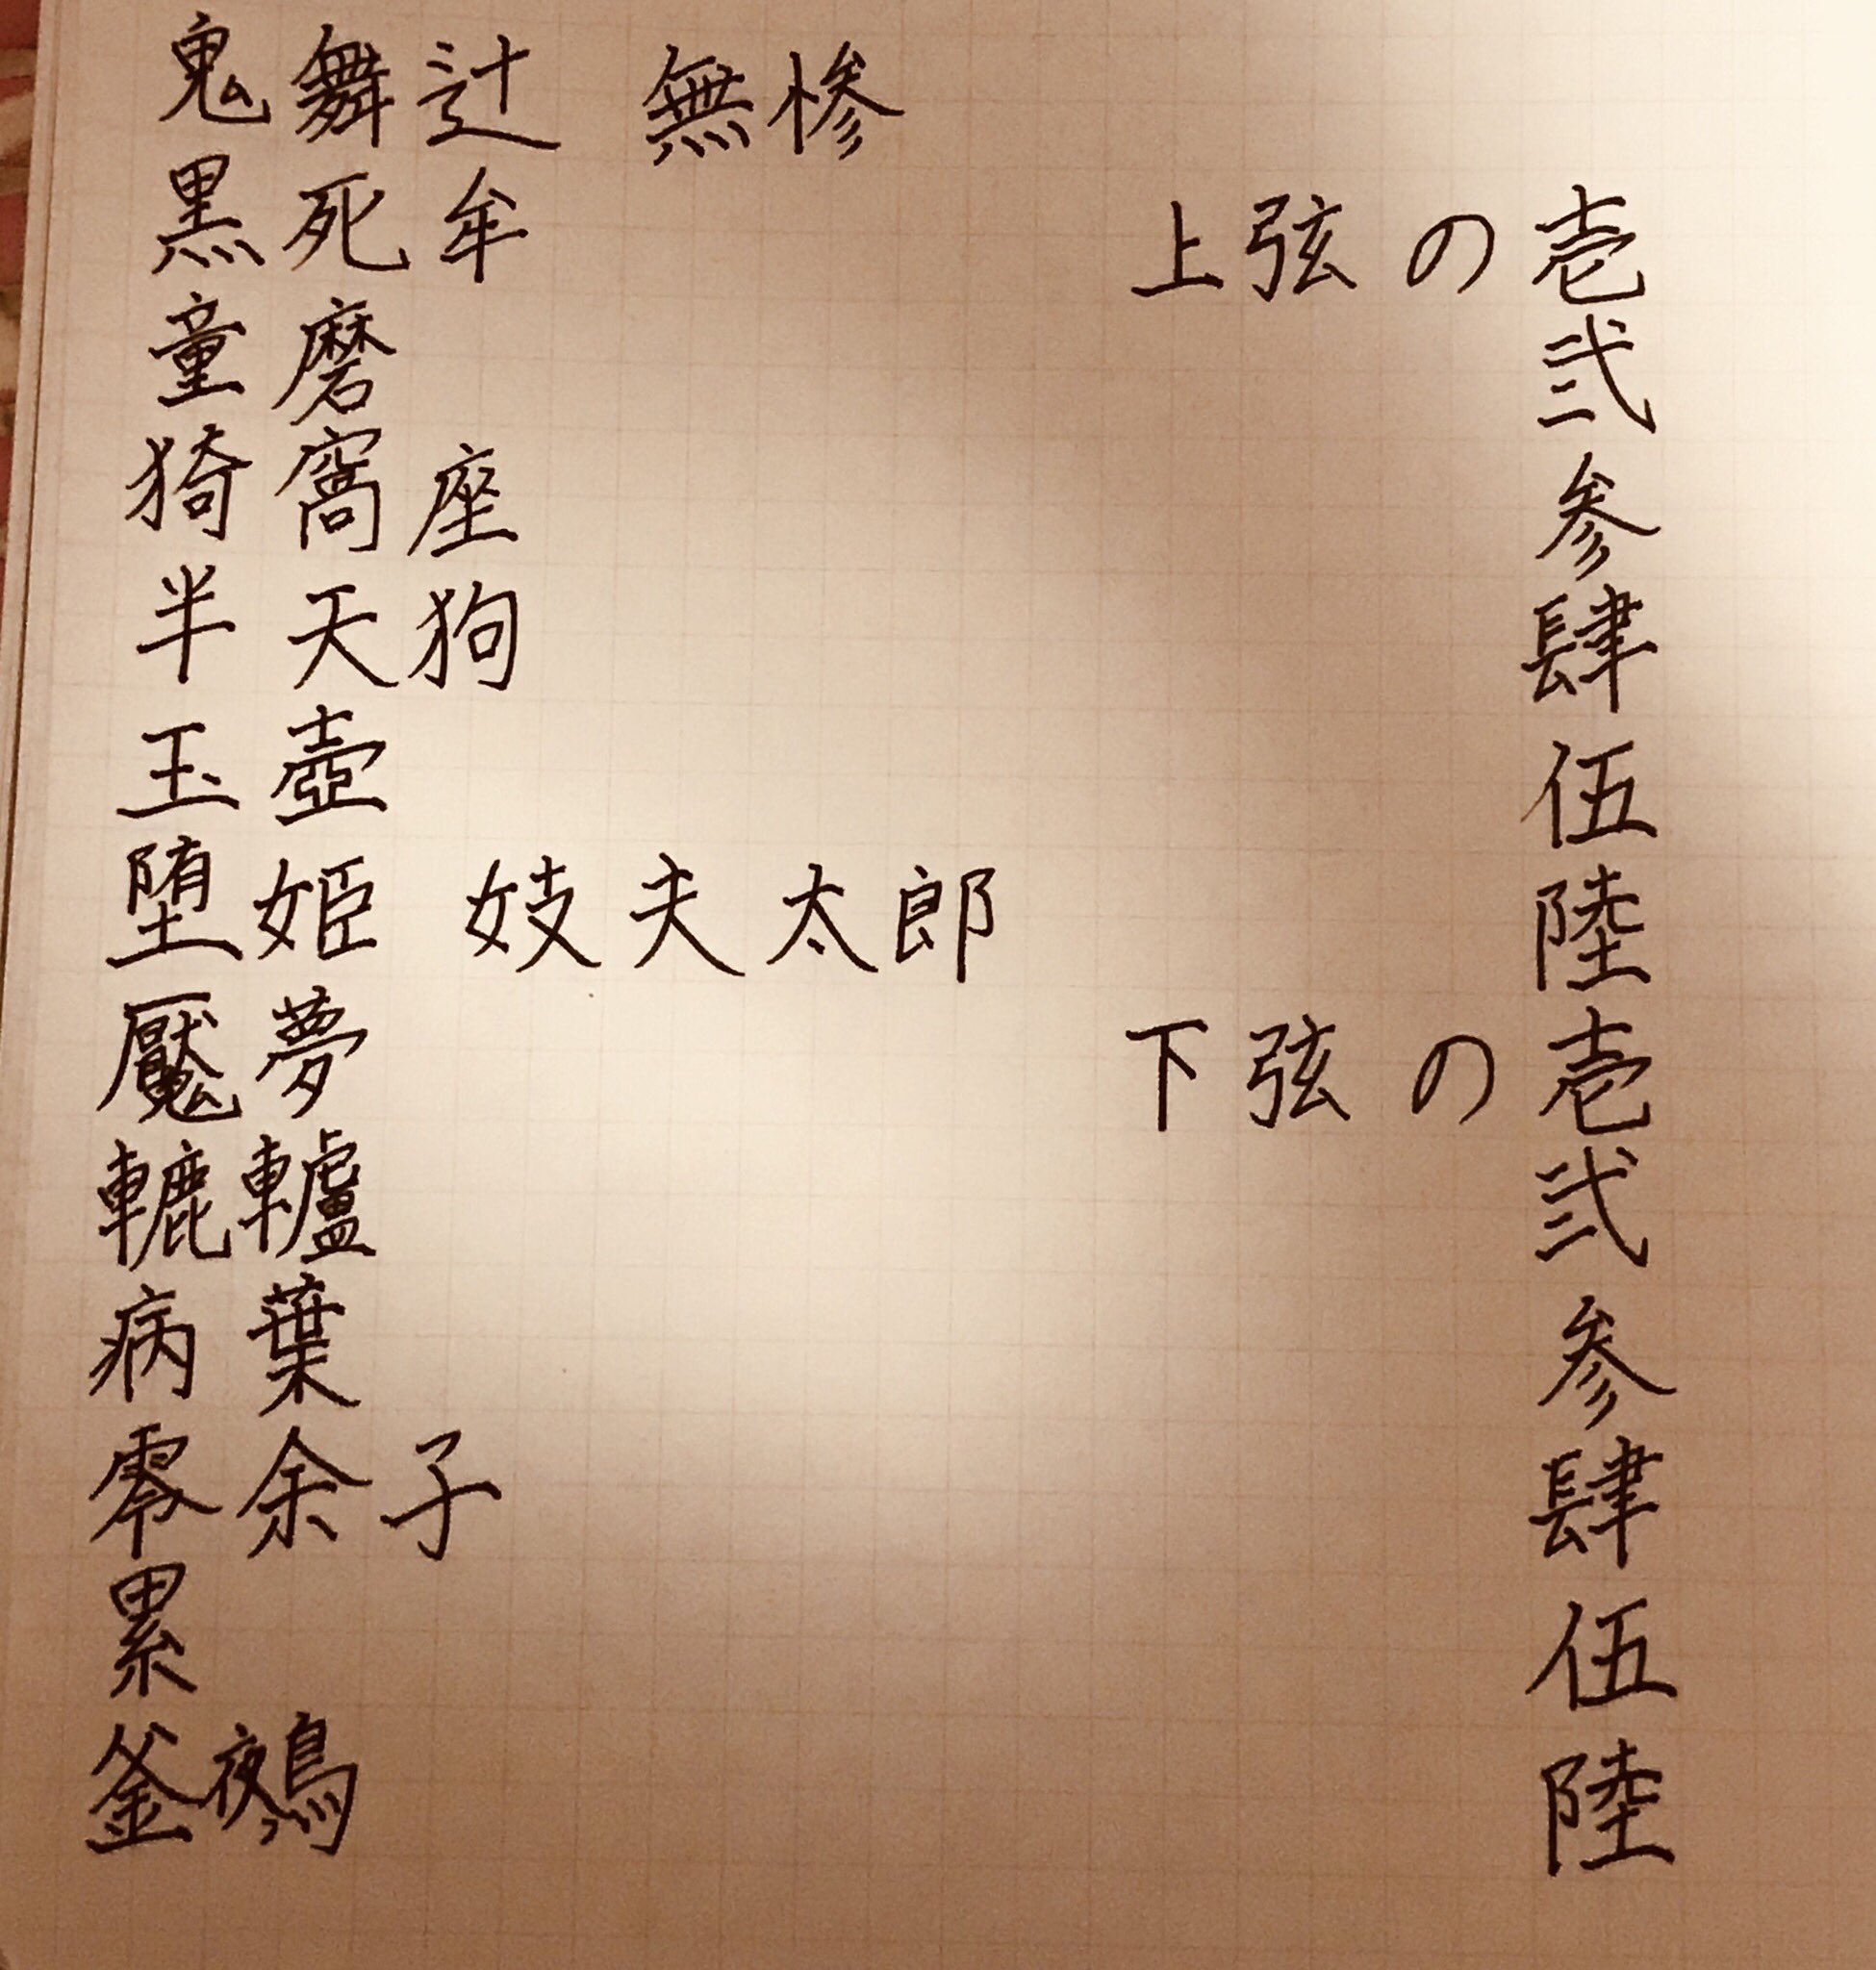 鬼舞辻 無惨
黒死牟 上弦の壱
童磨 弐
猗窩座 参
半天狗 肆
玉壺 伍
堕姫 妓夫太郎 陸
魘夢 下弦の壱
轆轤 弐
病葉 参
零余子 肆
累 伍
釜鵺 陸